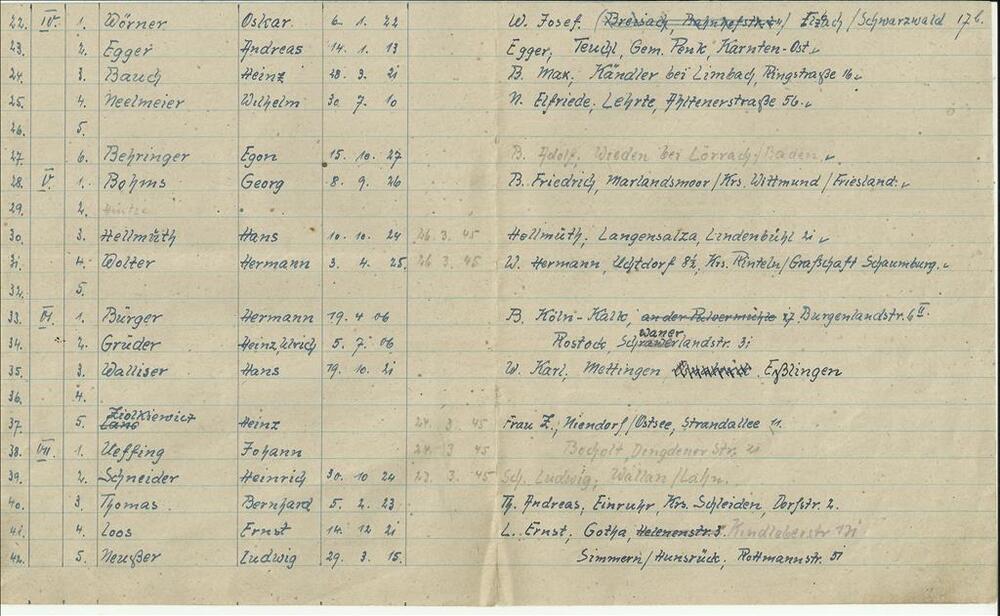 22. IV. 1. Wörner Oskar 6 1 22 W. Josef, (Breisach Bahnhofstr. / Elzach / Schwarzwald 176.
23. 2. Egger Andreas 14. 1. 13 Egger, Teuchl, Gem. Penk, Kärnten-Ost
24. 3. Bauch Heinz 28 3. 21 B. Max, Kändler bei Limbach, Ringstraße 16
25. 4. Neelmeier Wilhelm 30 7. 10 N. Elfriede, Lehrte, Ahltenerstraße 56.
26. 5.
27. 6. Behringer Egon 15. 10. 27 B. Adolf, Wieden bei Lörrach / Baden
28. V. 1. Bohms Georg 8. 9. 26 B. Friedrich, Marlandsmoor / Krs. Wittmund / Friesland.
29. 2. Hintze
30. 3. Hellmuth Hans 10. 10. 24 26. 3. 45 Hellmuth, Langensalza, Lindenbühl 21
31. 4. Wolter Hermann 3. 4. 25. 26 3. 45 W. Hermann, Uchtdorf 8½, Krs. Rinteln / Grafschaft Schaumburg.
32. 5.
33. VI. 1. Bürger Hermann 19. 4 06 B. Köln-Kalk, an der Pulvermühle 27 Burgenlandstr. 6 II.
34. 2. Gruder Heinz, Ulrich 5. 7. 06 Rostock, Schwanerlandstr. 31
35. 3. Walliser Hans 19. 10. 21 W. Karl, Mettingen Eßlingen
36. 4.
Ziolkiewicz
37. 5. Lang Heinz 24. 3. 45 Frau Z., Niendorf / Ostsee, Strandallee 11.
38. VII. 1. Ueffing Johann 24. 3 45 Bocholt, Dingdener Str. 21
39. 2. Schneider Heinrich 30. 10 24 23. 3. 45 Sch. Ludwig, Wallau / Lahn.
40. 3. Thomas Bernhard 5. 2. 23 Th. Andreas, Einruhr, Krs. Schleiden, Dorfstr. 2.
41. 4. Loos Ernst 14. 12 21 L. Ernst, Gotha, Helenenstr. 3. Kindleberstr 121
42. 5. Neußer Ludwig 29. 3. 15. Simmern / Hunsrück, Rottmannstr. 51